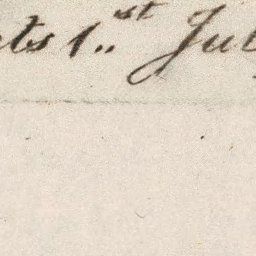 ts 1.st Jul